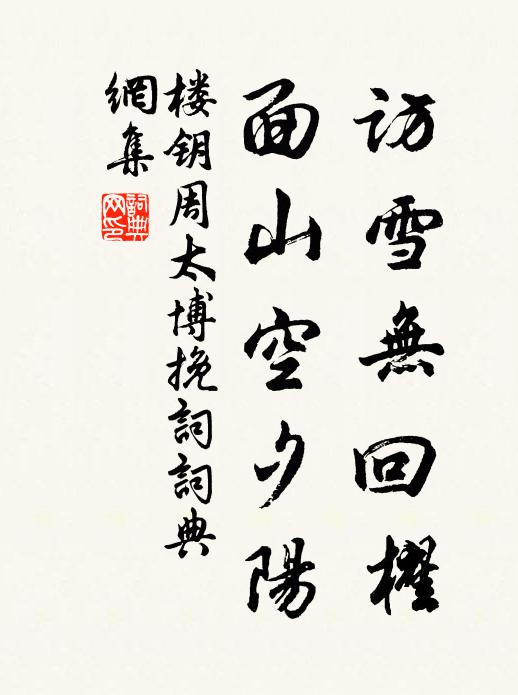 訪雪無回櫂
面山空夕陽
楼钥周太博挽詞詞典
網集
詞典
网印